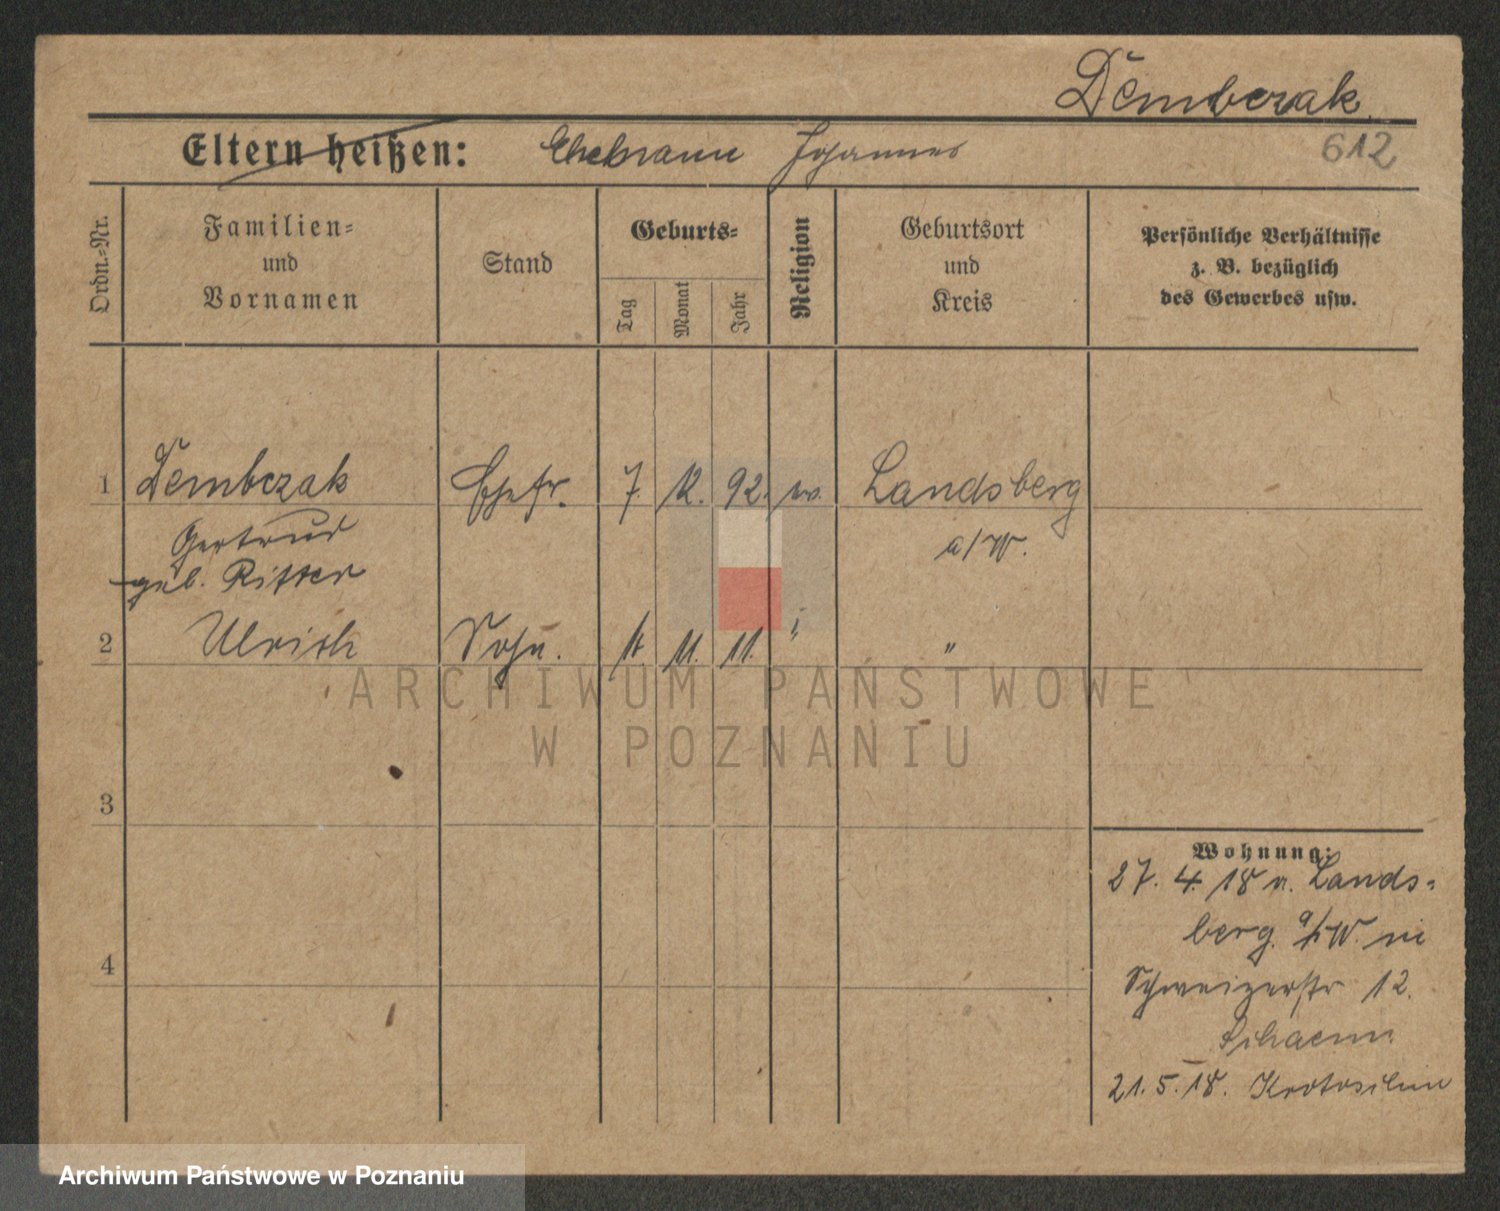 Dembczak
Eltern heißen: Ehemann Johannes
612
Ordn.-Nr.
Familien-
und
Vornamen
Stand
Geburts-
Tag
Monat
Jahr
Religion
Geburtsort
und
Kreis
Persönliche Verhältnisse
z. B. bezüglich
des Gewerbes usw.
1 Dembczak Ehefr. 7. 12. 92. ev. Landsberg
Gertrud a/W.
geb. Ritter
2 Ulrich Sohn. 11. 11. 11. " "
ARCHIWUM PAŃSTWOWE
W POZNANIU
3
4
Wohnung:
27. 4. 18 v. Lands-
berg a/W.
Schweizerstr 12.
21. 5. 18. Krotoschin
Archiwum Państwowe w Poznaniu